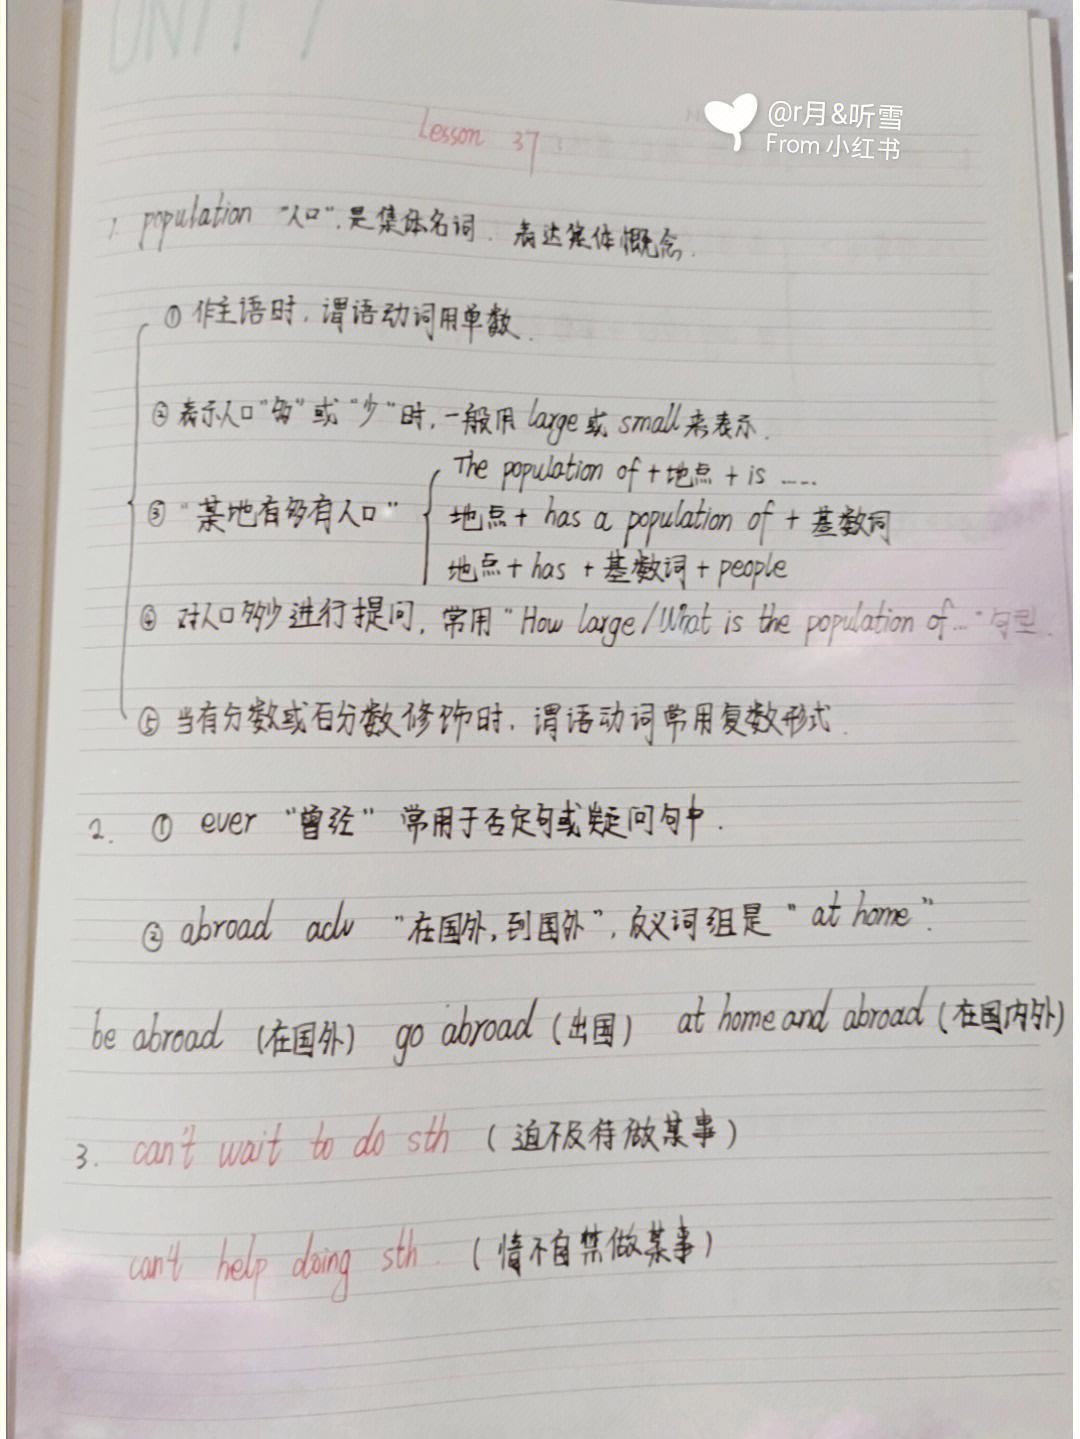 UNIT 7
@r月&听雪
From 小红书
Lesson 37
1. population "人口",是集体名词. 表达集体概念.
① 作主语时,谓语动词用单数.
② 表示人口"多"或"少"时,一般用 large 或 small 来表示.
The population of + 地点 + is ……
③ "某地有多有人口" 地点 + has a population of + 基数词
地点 + has + 基数词 + people
④ 对人口多少进行提问,常用 "How large/What is the population of…" 句型.
⑤ 当有分数或百分数修饰时,谓语动词常用复数形式.
2. ① ever "曾经" 常用于否定句或疑问句中.
② abroad adv "在国外,到国外",反义词组是 "at home".
be abroad (在国外) go abroad (出国) at home and abroad (在国内外)
3. can't wait to do sth (迫不及待做某事)
can't help doing sth. (情不自禁做某事)